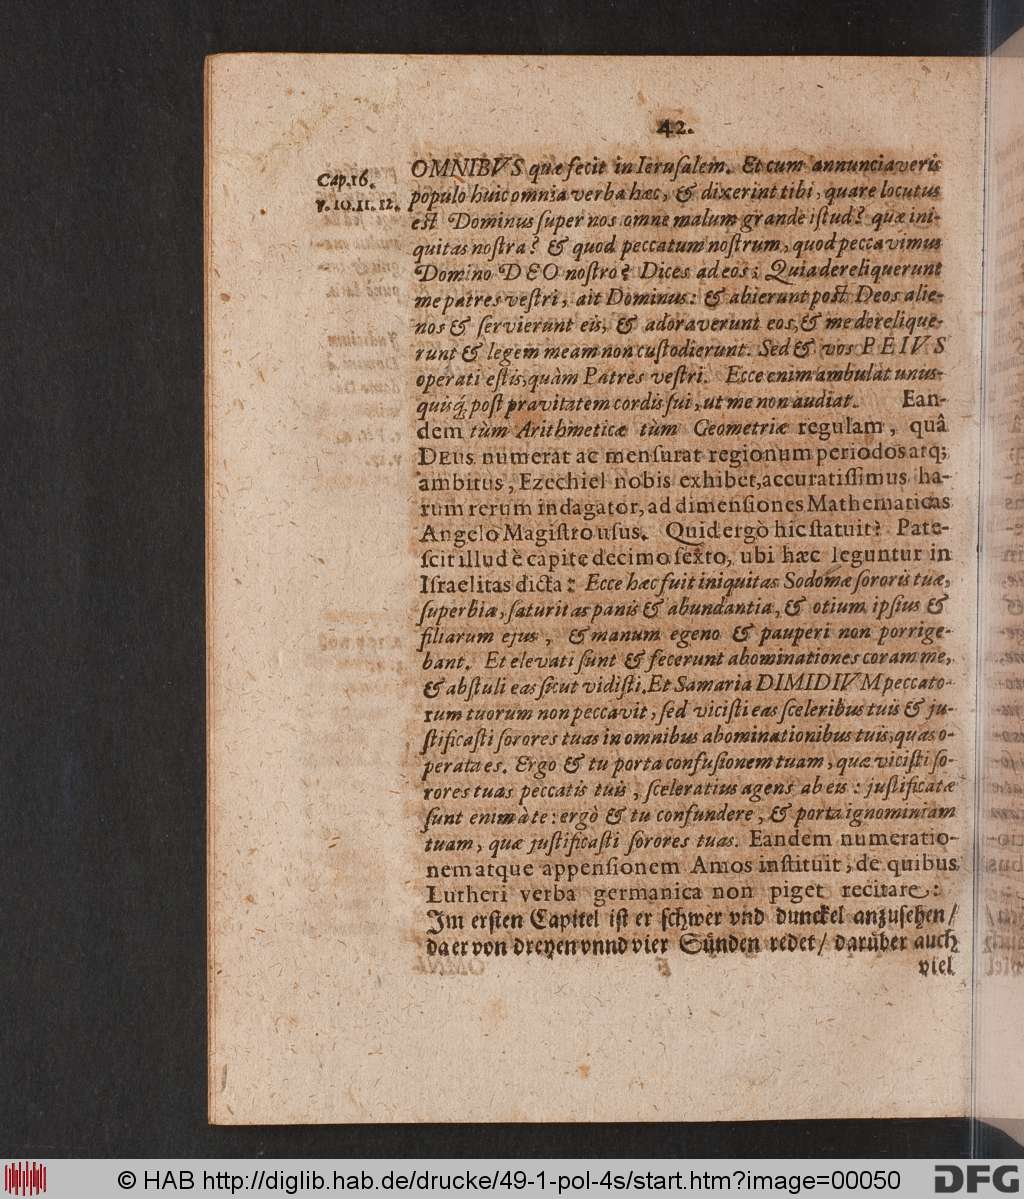 42.
Cap.16.
v.10.11.12.
OMNIBVS quæ fecit in Ierusalem. Et cum annunciaveris
populo huic omnia verba hæc, & dixerint tibi, quare locutus
est Dominus super nos omne malum grande istud? quæ ini-
quitas nostra? & quod peccatum nostrum, quod peccavimus
Domino DEO nostro? Dices ad eos; Quia dereliquerunt
me patres vestri, ait Dominus: & abierunt post Deos alie-
nos & servierunt eis, & adoraverunt eos, & me derelique-
runt & legem meam non custodierunt. Sed & vos PEIVS
operati estis, quàm Patres vestri. Ecce enim ambulat unus-
quisq; post pravitatem cordis sui, ut me non audiat. Ean-
dem tùm Arithmeticæ tùm Geometriæ regulam, quâ
DEus numerat ac mensurat regionum periodos atq;
ambitus, Ezechiel nobis exhibet, accuratissimus ha-
rum rerum indagator, ad dimensiones Mathematicas
Angelo Magistro usus. Quid ergò hic statuit? Pate-
scit illud è capite decimo sexto, ubi hæc leguntur in
Israelitas dicta: Ecce hæc fuit iniquitas Sodomæ sororis tuæ,
superbia, saturitas panis & abundantia, & otium ipsius &
filiarum ejus, & manum egeno & pauperi non porrige-
bant. Et elevati sunt & fecerunt abominationes coram me,
& abstuli eas sicut vidisti. Et Samaria DIMIDIVM peccato-
rum tuorum non peccavit, sed vicisti eas sceleribus tuis & ju-
stificasti sorores tuas in omnibus abominationibus tuis, quas o-
perata es. Ergo & tu porta confusionem tuam, quæ vicisti so-
rores tuas peccatis tuis, sceleratius agens ab eis: justificatæ
sunt enim à te: ergò & tu confundere, & porta ignominiam
tuam, quæ justificasti sorores tuas. Eandem numeratio-
nem atque appensionem Amos instituit, de quibus
Lutheri verba germanica non piget recitare:
Im ersten Capitel ist er schwer vnd dunckel anzusehen/
da er von dreyen vnnd vier Sünden redet/ darüber auch
viel
© HAB http://diglib.hab.de/drucke/49-1-pol-4s/start.htm?image=00050
DFG